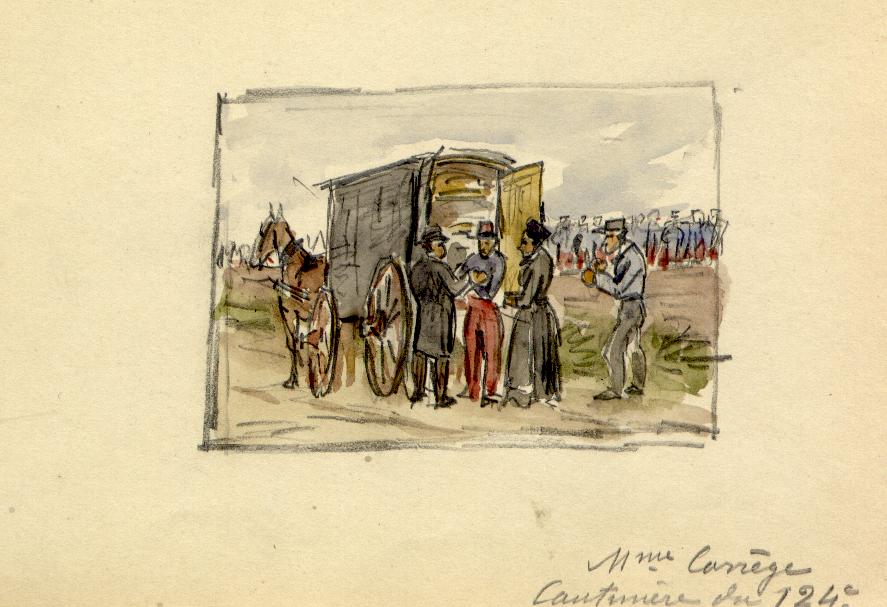 Mme Corrège
Cantinière du 124e